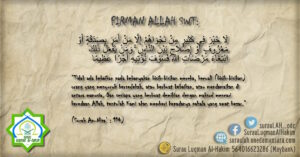 FIRMAN ALLAH SWT:
لَا خَيْرَ فِي كَثِيرٍ مِنْ نَجْوَاهُمْ إِلَّا مَنْ أَمَرَ بِصَدَقَةٍ أَوْ
مَعْرُوفٍ أَوْ إِصْلَاحٍ بَيْنَ النَّاسِ وَمَنْ يَفْعَلْ ذَلِكَ
ابْتِغَاءَ مَرْضَاتِ اللَّهِ فَسَوْفَ نُؤْتِيهِ أَجْرًا عَظِيمًا
"Tidak ada kebaikan pada kebanyakan bisik-bisikan mereka, kecuali (bisik-bisikan)
orang yang menyuruh bersedekah, atau berbuat kebaikan, atau mendamaikan di
antara manusia. Dan sesiapa yang berbuat demikian dengan maksud mencari
keredaan Allah, tentulah Kami akan memberi kepadanya pahala yang amat besar."
(Surah An-Nisa' : 114)
surauLAH_odc
SurauLuqmanAlHakim
suraulah.onedamansara.com
Surau Luqman Al-Hakim: 564016623286 (Maybank)